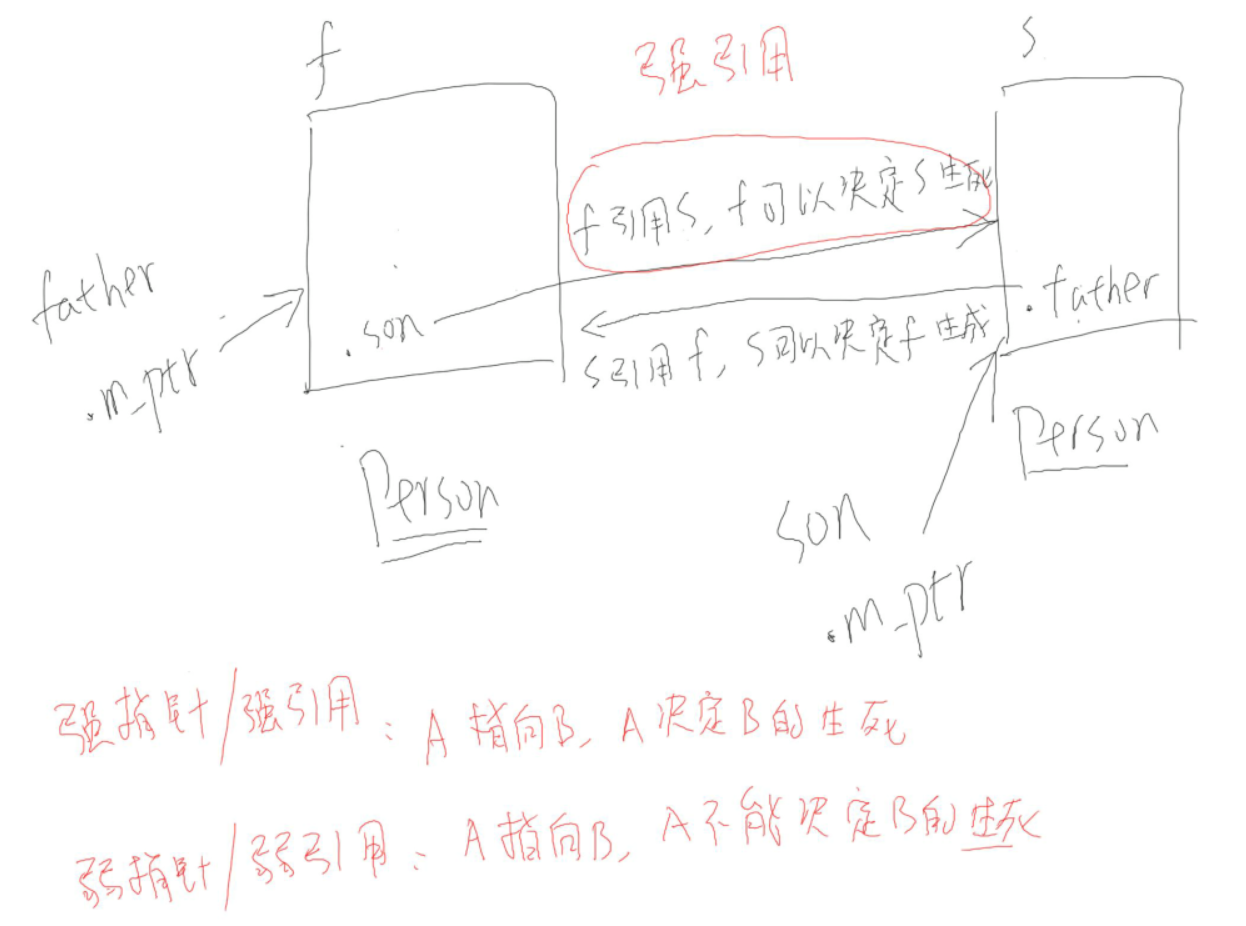 f
强引用
s
f引用s,f可以决定s生死
father
.m_ptr
.son
.father
s引用f,s可以决定f生成
Person
Person
son
.m_ptr
强指针/强引用:A指向B,A决定B的生死
弱指针/弱引用:A指向B,A不能决定B的生死